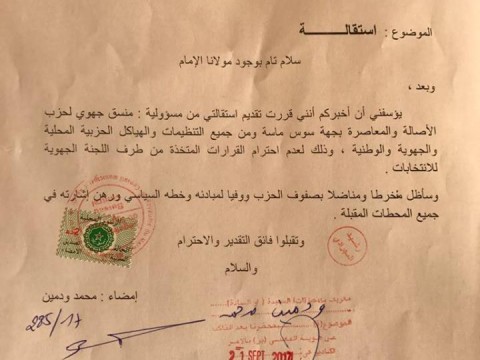 الموضوع : استقالـــــة
سلام تام بوجود مولانا الإمام
وبعد ،
يؤسفني أن أخبركم أنني قررت تقديم استقالتي من مسؤولية : منسق جهوي لحزب
الأصالة والمعاصرة بجهة سوس ماسة ومن جميع التنظيمات والهياكل الحزبية المحلية
والجهوية والوطنية ، وذلك لعدم احترام القرارات المتخذة من طرف اللجنة الجهوية
للانتخابات .
وسأظل مُخرطا ومناضلا بصفوف الحزب ووفيا لمبادئه وخطه السياسي ورهن إشارته في
جميع المحطات المقبلة .
وتقبلوا فائق التقدير والاحترام
والسلام
إمضاء : محمد ودمين
285/17
21 SEPT 2017